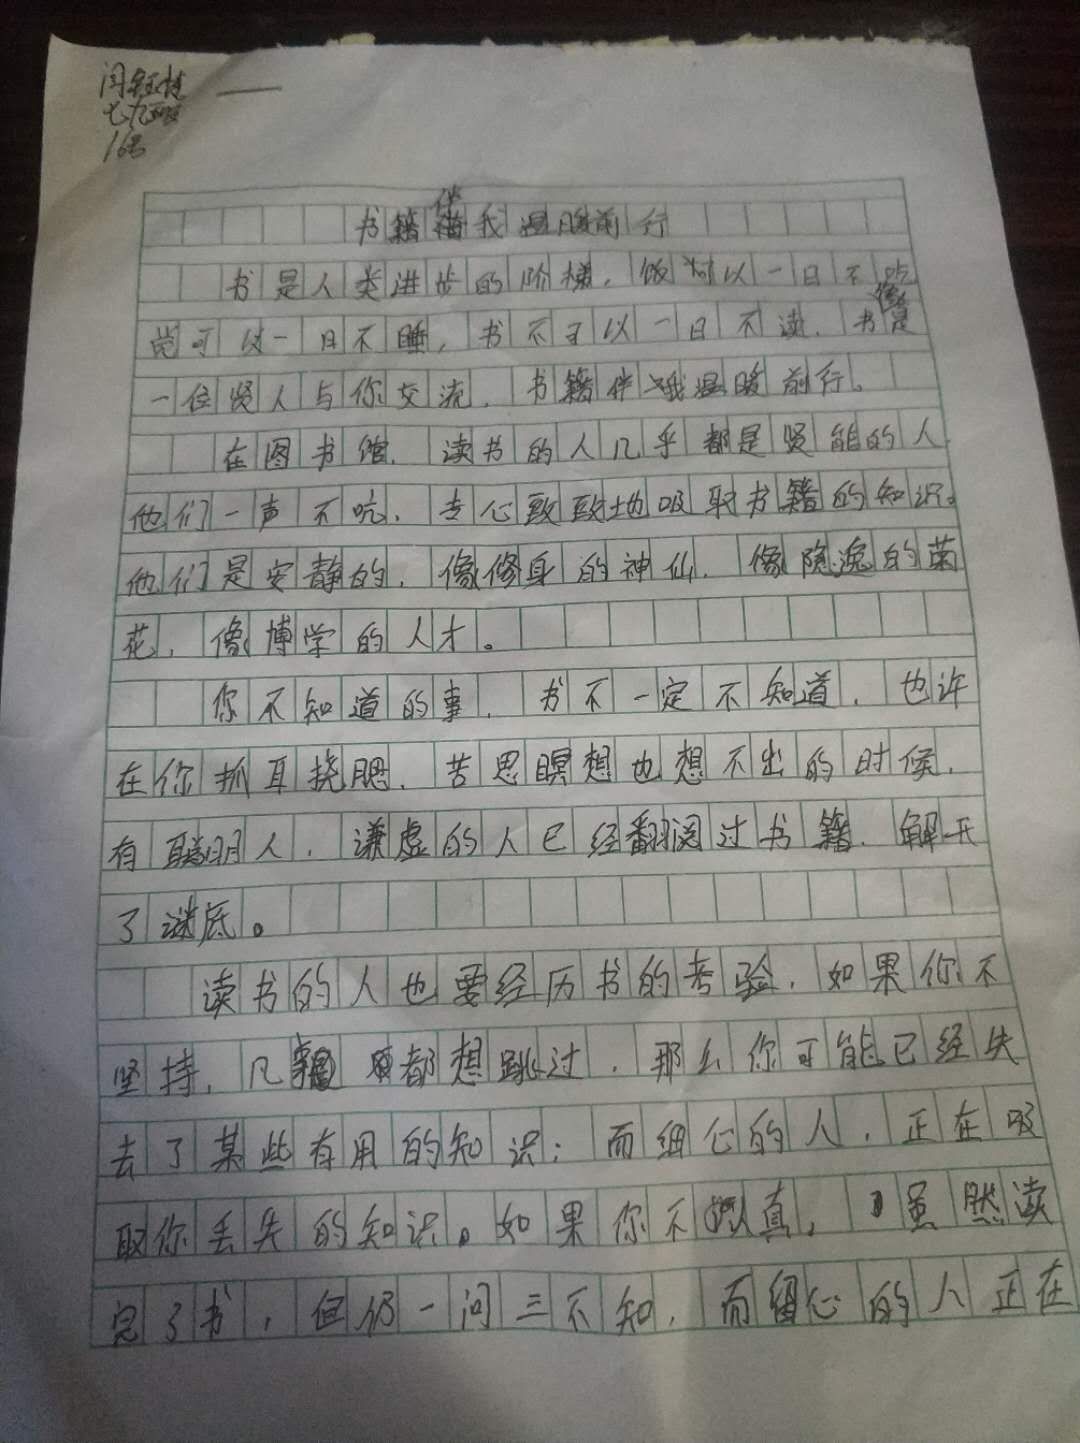 闫钰桂
七九班
16号
书籍伴我温暖前行
书是人类进步的阶梯，饭可以一日不吃
觉可以一日不睡，书不可以一日不读，书像是
一位贤人与你交流，书籍伴我温暖前行。
在图书馆，读书的人几乎都是贤能的人
他们一声不吭，专心致致地吸取书籍的知识。
他们是安静的，像修身的神仙，像隐逸的菊
花，像博学的人才。
你不知道的事，书不一定不知道，也许
在你抓耳挠腮，苦思瞑想也想不出的时候，
有聪明人，谦虚的人已经翻阅过书籍，解开
了谜底。
读书的人也要经历书的考验，如果你不
坚持，凡事都想跳过，那么你可能已经失
去了某些有用的知识；而细心的人，正在吸
取你丢失的知识。如果你不认真，虽然读
完了书，但仍一问三不知，而留心的人正在